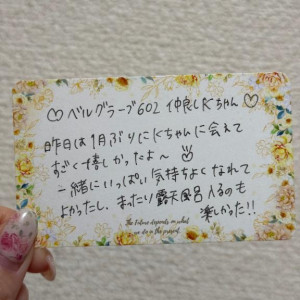 ♡ベルグラーブ602 仲良しKちゃん♡
昨日は1月ぶりにKちゃんに会えて
すごく嬉しかったよ〜
一緒にいっぱい気持ちよくなれて
よかったし、まったり露天風呂入るのも
楽しかった!!
The Future depends on what
we do in the present.